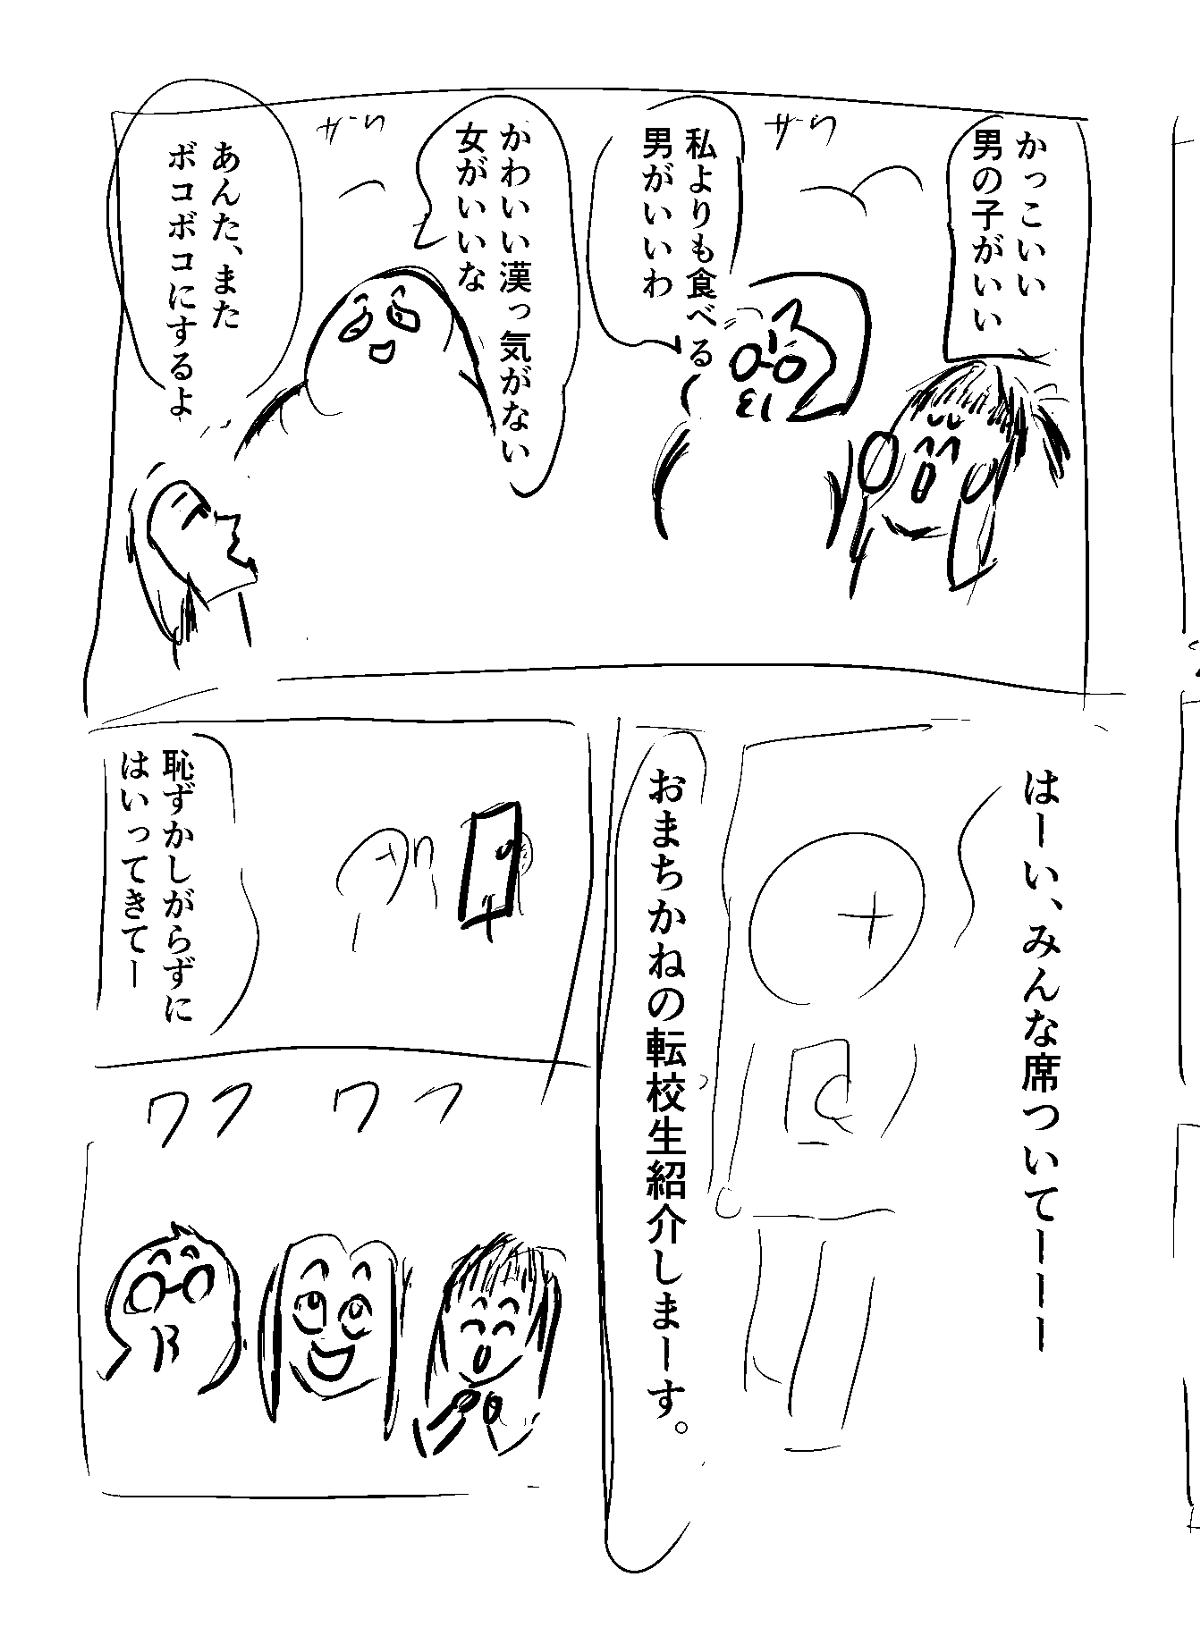 かっこいい
男の子がいい
ザワ
私よりも食べる
男がいいわ
かわいい漢っ気がない
女がいいな
ザワ
あんた、また
ボコボコにするよ
はーい、みんな席ついてーーー
おまちかねの転校生紹介しまーす。
恥ずかしがらずに
はいってきてー
ワク
ワク